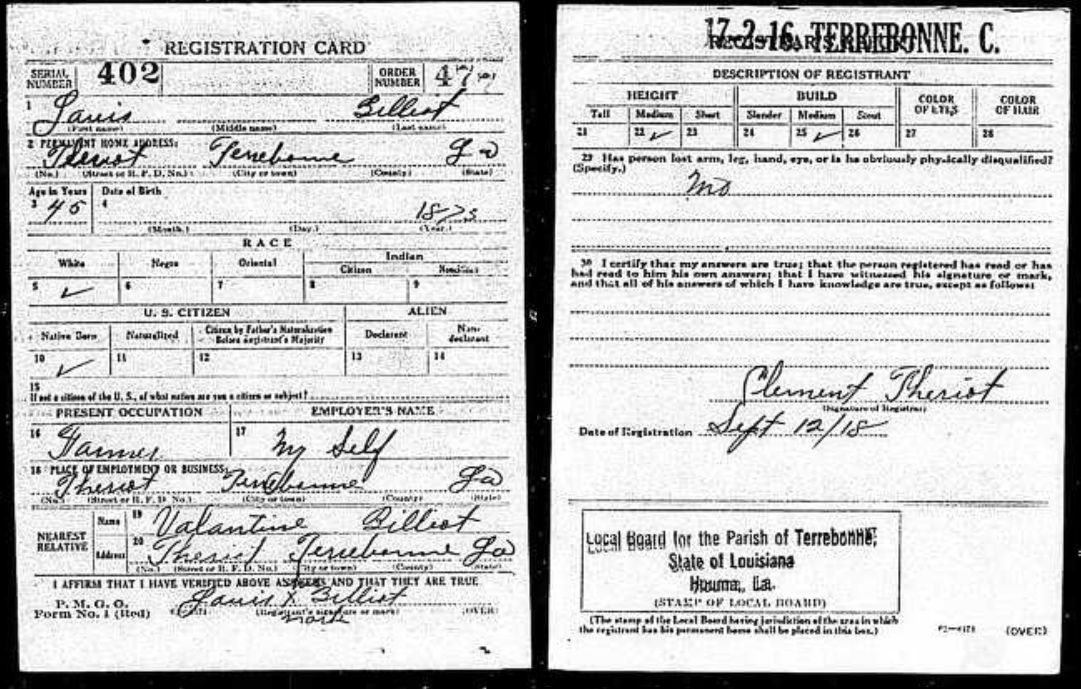 REGISTRATION CARD
SERIAL NUMBER 402 ORDER NUMBER 47
1 Louis Billiot
(First name) (Middle name) (Last name)
2 PERMANENT HOME ADDRESS:
Theriot Terrebonne La
(No.) (Street or R. F. D. No.) (City or town) (County) (State)
Age in Years Date of Birth
3 45 4 1873
(Month.) (Day.) (Year.)
RACE
White Negro Oriental Indian
Citizen Noncitizen
5 ✓ 6 7 8 9
U. S. CITIZEN ALIEN
Native Born Naturalized Citizen by Father's Naturalization Before Registrant's Majority Declarant Non-declarant
10 ✓ 11 12 13 14
15
If not a citizen of the U. S., of what nation are you a citizen or subject?
PRESENT OCCUPATION EMPLOYER'S NAME
16 Farmer 17 My Self
18 PLACE OF EMPLOYMENT OR BUSINESS:
Theriot Terrebonne La
(No.) (Street or R. F. D. No.) (City or town) (County) (State)
NEAREST RELATIVE
Name 19 Valantine Billiot
Address 20 Theriot Terrebonne La
(No.) (Street or R. F. D. No.) (City or town) (County) (State)
I AFFIRM THAT I HAVE VERIFIED ABOVE ANSWERS AND THAT THEY ARE TRUE
P. M. G. O.
Form No. 1 (Red) Louis X Billiot
(Registrant's signature or mark) (OVER)
mark
17-2-16 TERREBONNE. C.
REGISTRAR'S REPORT
DESCRIPTION OF REGISTRANT
HEIGHT BUILD COLOR OF EYES COLOR OF HAIR
Tall Medium Short Slender Medium Stout
21 22 ✓ 23 24 25 ✓ 26 27 28
29 Has person lost arm, leg, hand, eye, or is he obviously physically disqualified?
(Specify.)
no
30 I certify that my answers are true; that the person registered has read or has
had read to him his own answers; that I have witnessed his signature or mark,
and that all of his answers of which I have knowledge are true, except as follows:
Clement Theriot
(Signature of Registrar)
Date of Registration Sept 12/18
Local Board for the Parish of Terrebonne,
State of Louisiana
Houma, La.
(STAMP OF LOCAL BOARD)
(The stamp of the Local Board having jurisdiction of the area in which
the registrant has his permanent home shall be placed in this box.)
(OVER)